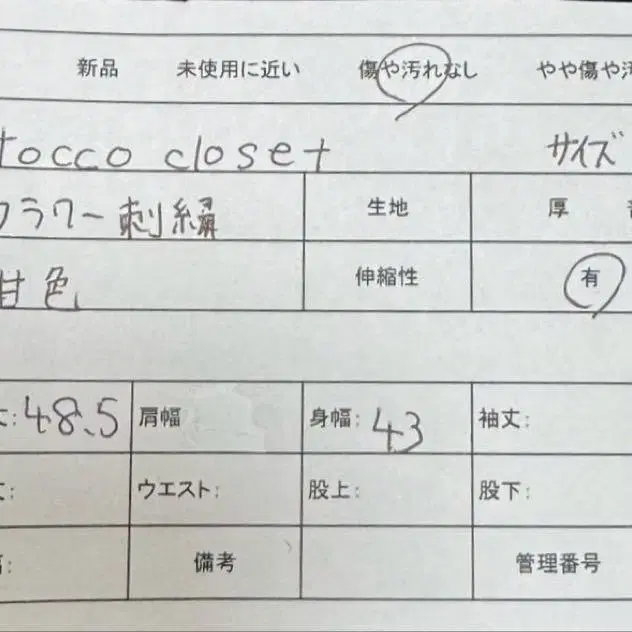 新品 未使用に近い 傷や汚れなし やや傷や汚
tocco closet サイズ
フラワー刺繍 生地 厚
伸縮性 有
色
48.5 肩幅 身幅: 43 袖丈:
丈: ウエスト: 股上: 股下:
備考 管理番号